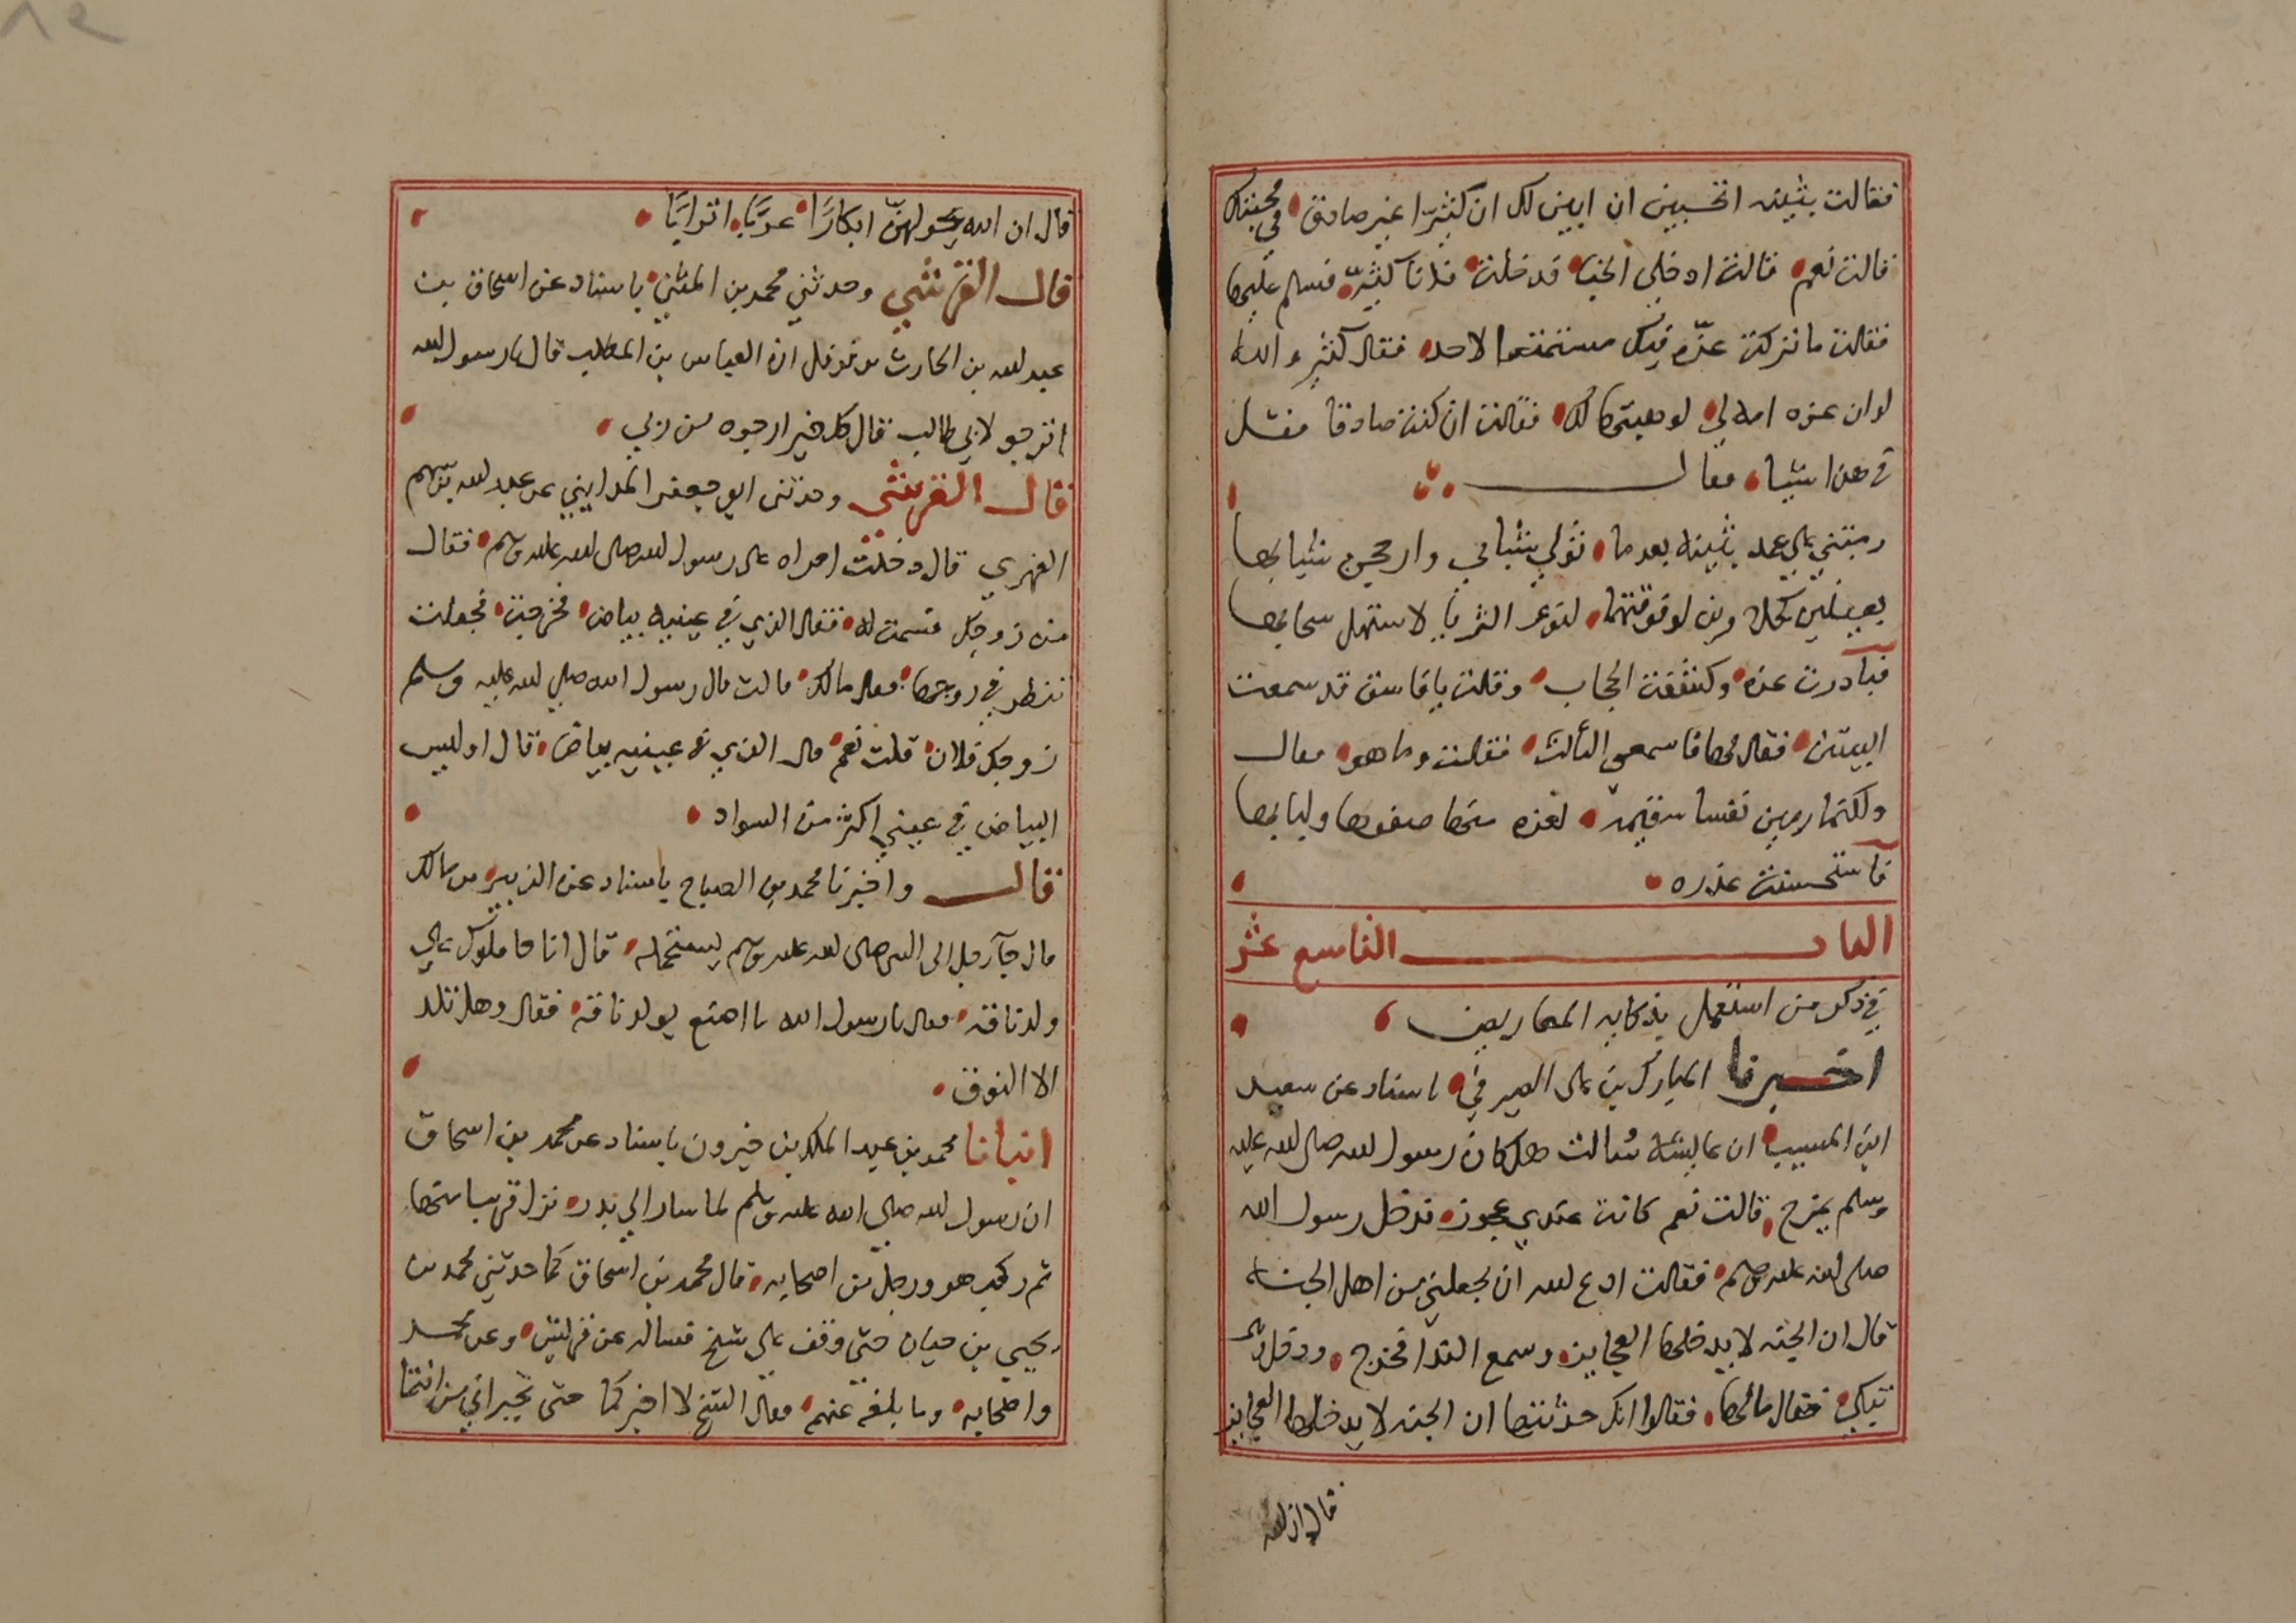 فقالت بثينه اتحسبين ان ابين لك ان كثيّرا غير صادق في محبتك
قالت نعم قالت ادخلي الخبا فدخلت فدنا كثيّر فسلم عليها
فقالت ما تركت عزّه فيك مستمتعا لاحد فقال كثير والله
لو ان عزه امه لي لوهبتها لك فقالت ان كنت صادقا فقل
في هذا شيا فقال
رمتني على عمد بثينه بعد ما تولى شبابي وارجحن شبابها
بعينين نجلاوين لو فوقتهما لنوء الثريا لاستهل سحابها
فبادرت عزه وكشفت الحجاب وقالت يا فاسق قد سمعت
البيتين فقال لها فاسمعي الثالث فقالت وما هو فقال
ولكنما رمين نفسا سقيمه لعزه منها صفوها ولبابها
فاستحسنت عذره
الباب التاسع عشر
في ذكر من استعمل بذكايه المعاريض
اخبرنا المبارك بن على الصيرفي باسناد عن سعيد
ابن المسيب ان عايشة سُالت هل كان رسول لله صلى لله عليه
وسلم يمزح قالت نعم كانت عندي عجوز فدخل رسول الله
صلى لله عليه وسلم فقالت ادع لله ان يجعلني من اهل الجنه
قال ان الجنه لا يدخلها العجايز وسمع الندا فخرج ودخل وهي
تبكي فقال مالها فقالوا انك حدثتها ان الجنه لا يدخلها العجايز
قال ان لله
قال ان الله يحولهنّ ابكارًا عربًا اترابًا
قال القرشي وحدثني محمد بن المثني باسناد عن اسحاق بن
عبد لله بن الحارث بن نوفل ان العباس بن المطلب قال يا رسول لله
اترجو لابي طالب قال كل خير ارجوه من ربي
قال القرشي وحدثنى ابو جعفر المدايني عن عبد لله بن سهم
الفهري قال دخلت امراه على رسول لله صلى لله عليه وسلم فقال
من زوجك فسمته له فقال الذي في عينيه بياض فخرجت فجعلت
تنظر في زوجها فقال مالك قالت قال رسول الله صلي لله عليه وسلم
زوجك فلان قلت نعم قال الذي في عينيه بياض قال او ليس
البياض في عيني اكثر من السواد
قال واخبرنا محمد بن الصباح باسناد عن الزبير بن مالك
قال جآ رجل الى النبى صلى لله عليه وسلم يستحمله قال انا حاملوك على
ولد ناقه فقال يا رسول الله ما اصنع بولد ناقه فقال وهل تلد
الا النوق
انبانا محمد بن عبد الملك بن خيرون باسناد عن محمد بن اسحاق
ان رسول لله صلي الله عليه وسلم لما سار الي بدر نزل قريبا منها
ثم ركب هو ورجل من اصحابه قال محمد بن اسحاق كما حدثني محمد بن
يحيي بن حيان حتى وقف على شيخ فساله عن قريش وعن محمد
واصحابه وما بلغه عنهم فقال الشيخ لا اخبركما حتى تخبراني من انتما